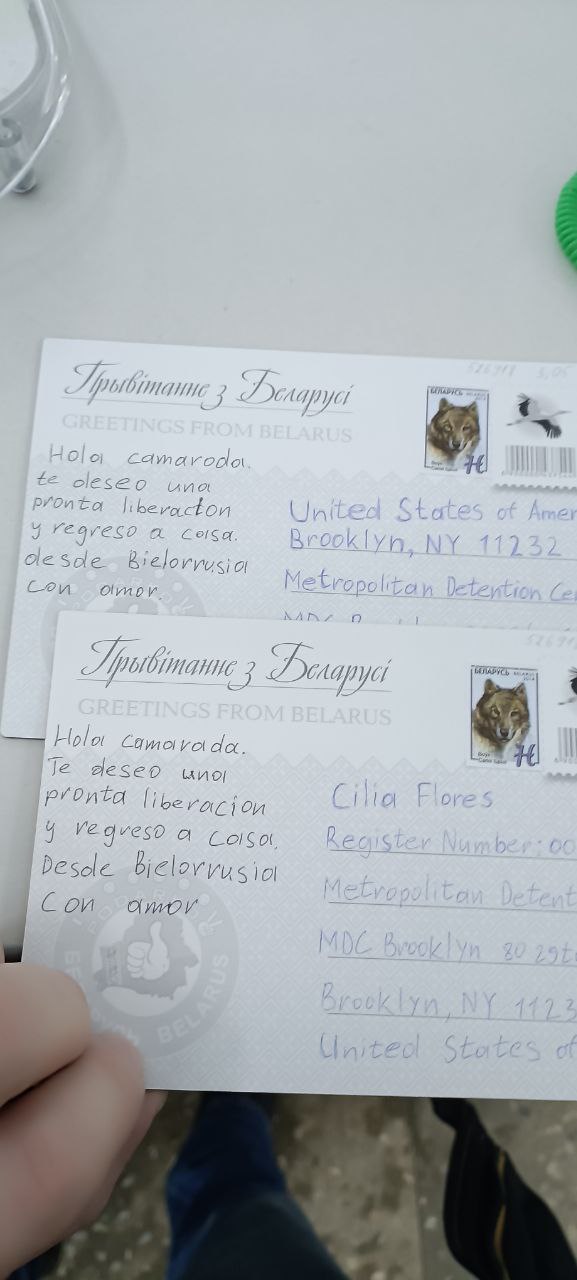 526918 3,05
Прывітанне з Беларусі
GREETINGS FROM BELARUS
БЕЛАРУСЬ
Hola camaroda.
te deseo una
pronta liberacion
y regreso a casa.
desde Bielorrusia
con amor.
H
United States of Amer
Brooklyn, NY 11232
Metropolitan Detention Ce
Прывітанне з Беларусі
GREETINGS FROM BELARUS
БЕЛАРУСЬ
Hola camarada.
Te deseo una
pronta liberacion
y regreso a casa.
Desde Bielorrusia
con amor
H
Cilia Flores
Register Number: 00
Metropolitan Detent
MDC Brooklyn 80 29t
Brooklyn, NY 1123
United States of
BELARUS